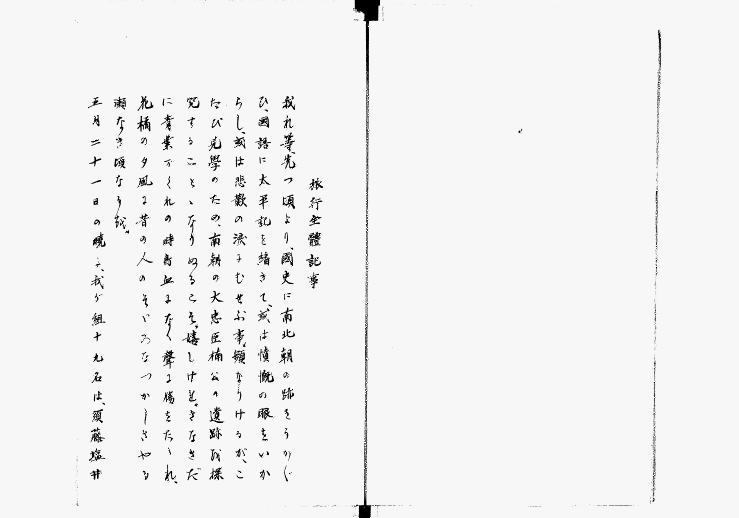 旅行全體記事
我れ等、先つ頃より、國史に南北朝の跡をうかゞ
ひ、國語に太平記を繙きて、或は憤慨の眼をいか
らし、或は悲歎の涙にむせぶ事、頻なりけるが、こ
たび見學のため、南朝の大忠臣楠公の遺跡を探
究することゝなりぬるこそ、嬉しけれ。さなきだ
に青葉がくれの時鳥血になく聲に腸をたゝれ、
花橘の夕風に昔の人のそゞろなつかしさやる
瀬なき頃なり哉。
五月二十一日の曉、我が組十九名は、須藤塩井